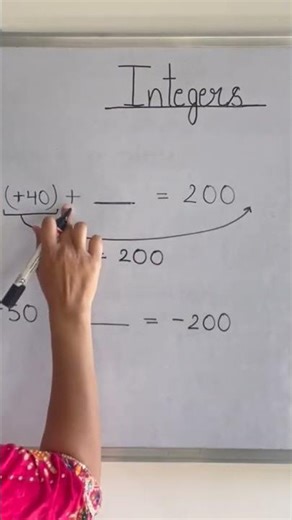 Integers
(+40) + ___ = 200
= 200
-50 ___ = -200